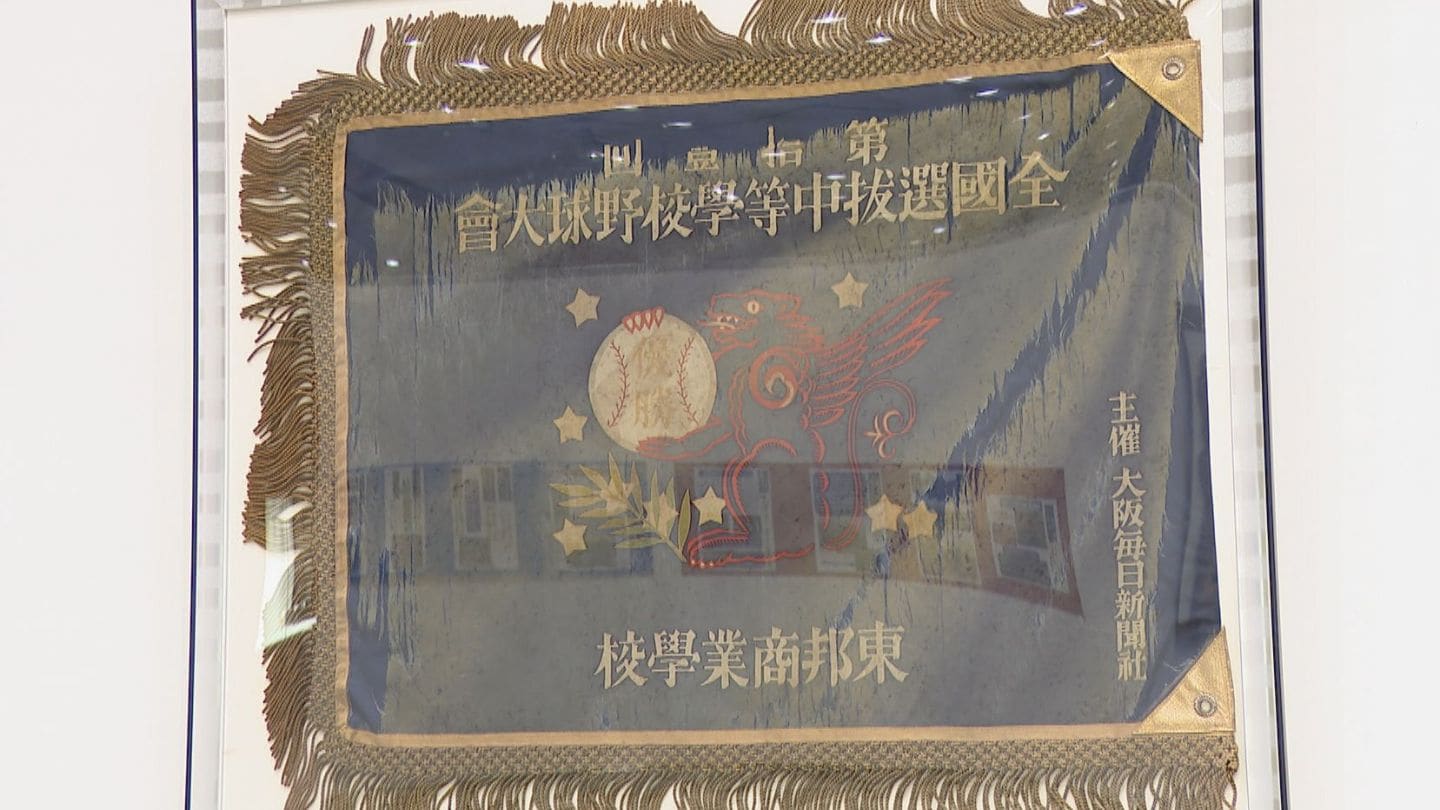 第拾壹回
全國選拔中等學校野球大會
優勝
東邦商業學校
主催 大阪每日新聞社